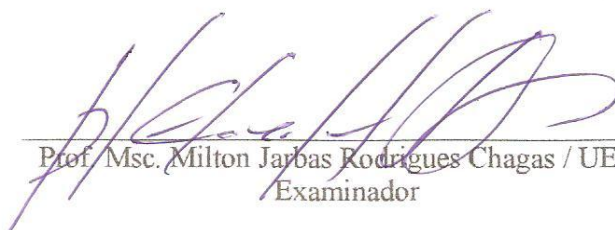 Prof. Msc. Milton Jarbas Rodrigues Chagas / UE
Examinador